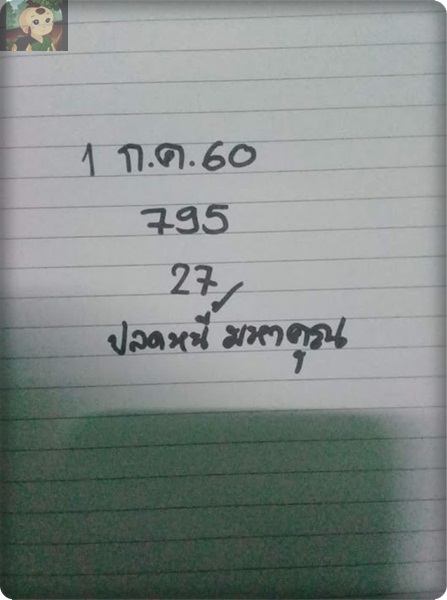 1 ก.ค.60
795
27
ปลดหนี้ มหาคูณ